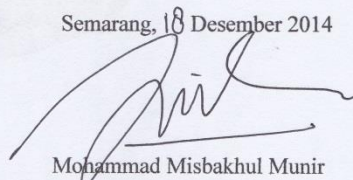 Semarang, 18 Desember 2014
Mohammad Misbakhul Munir